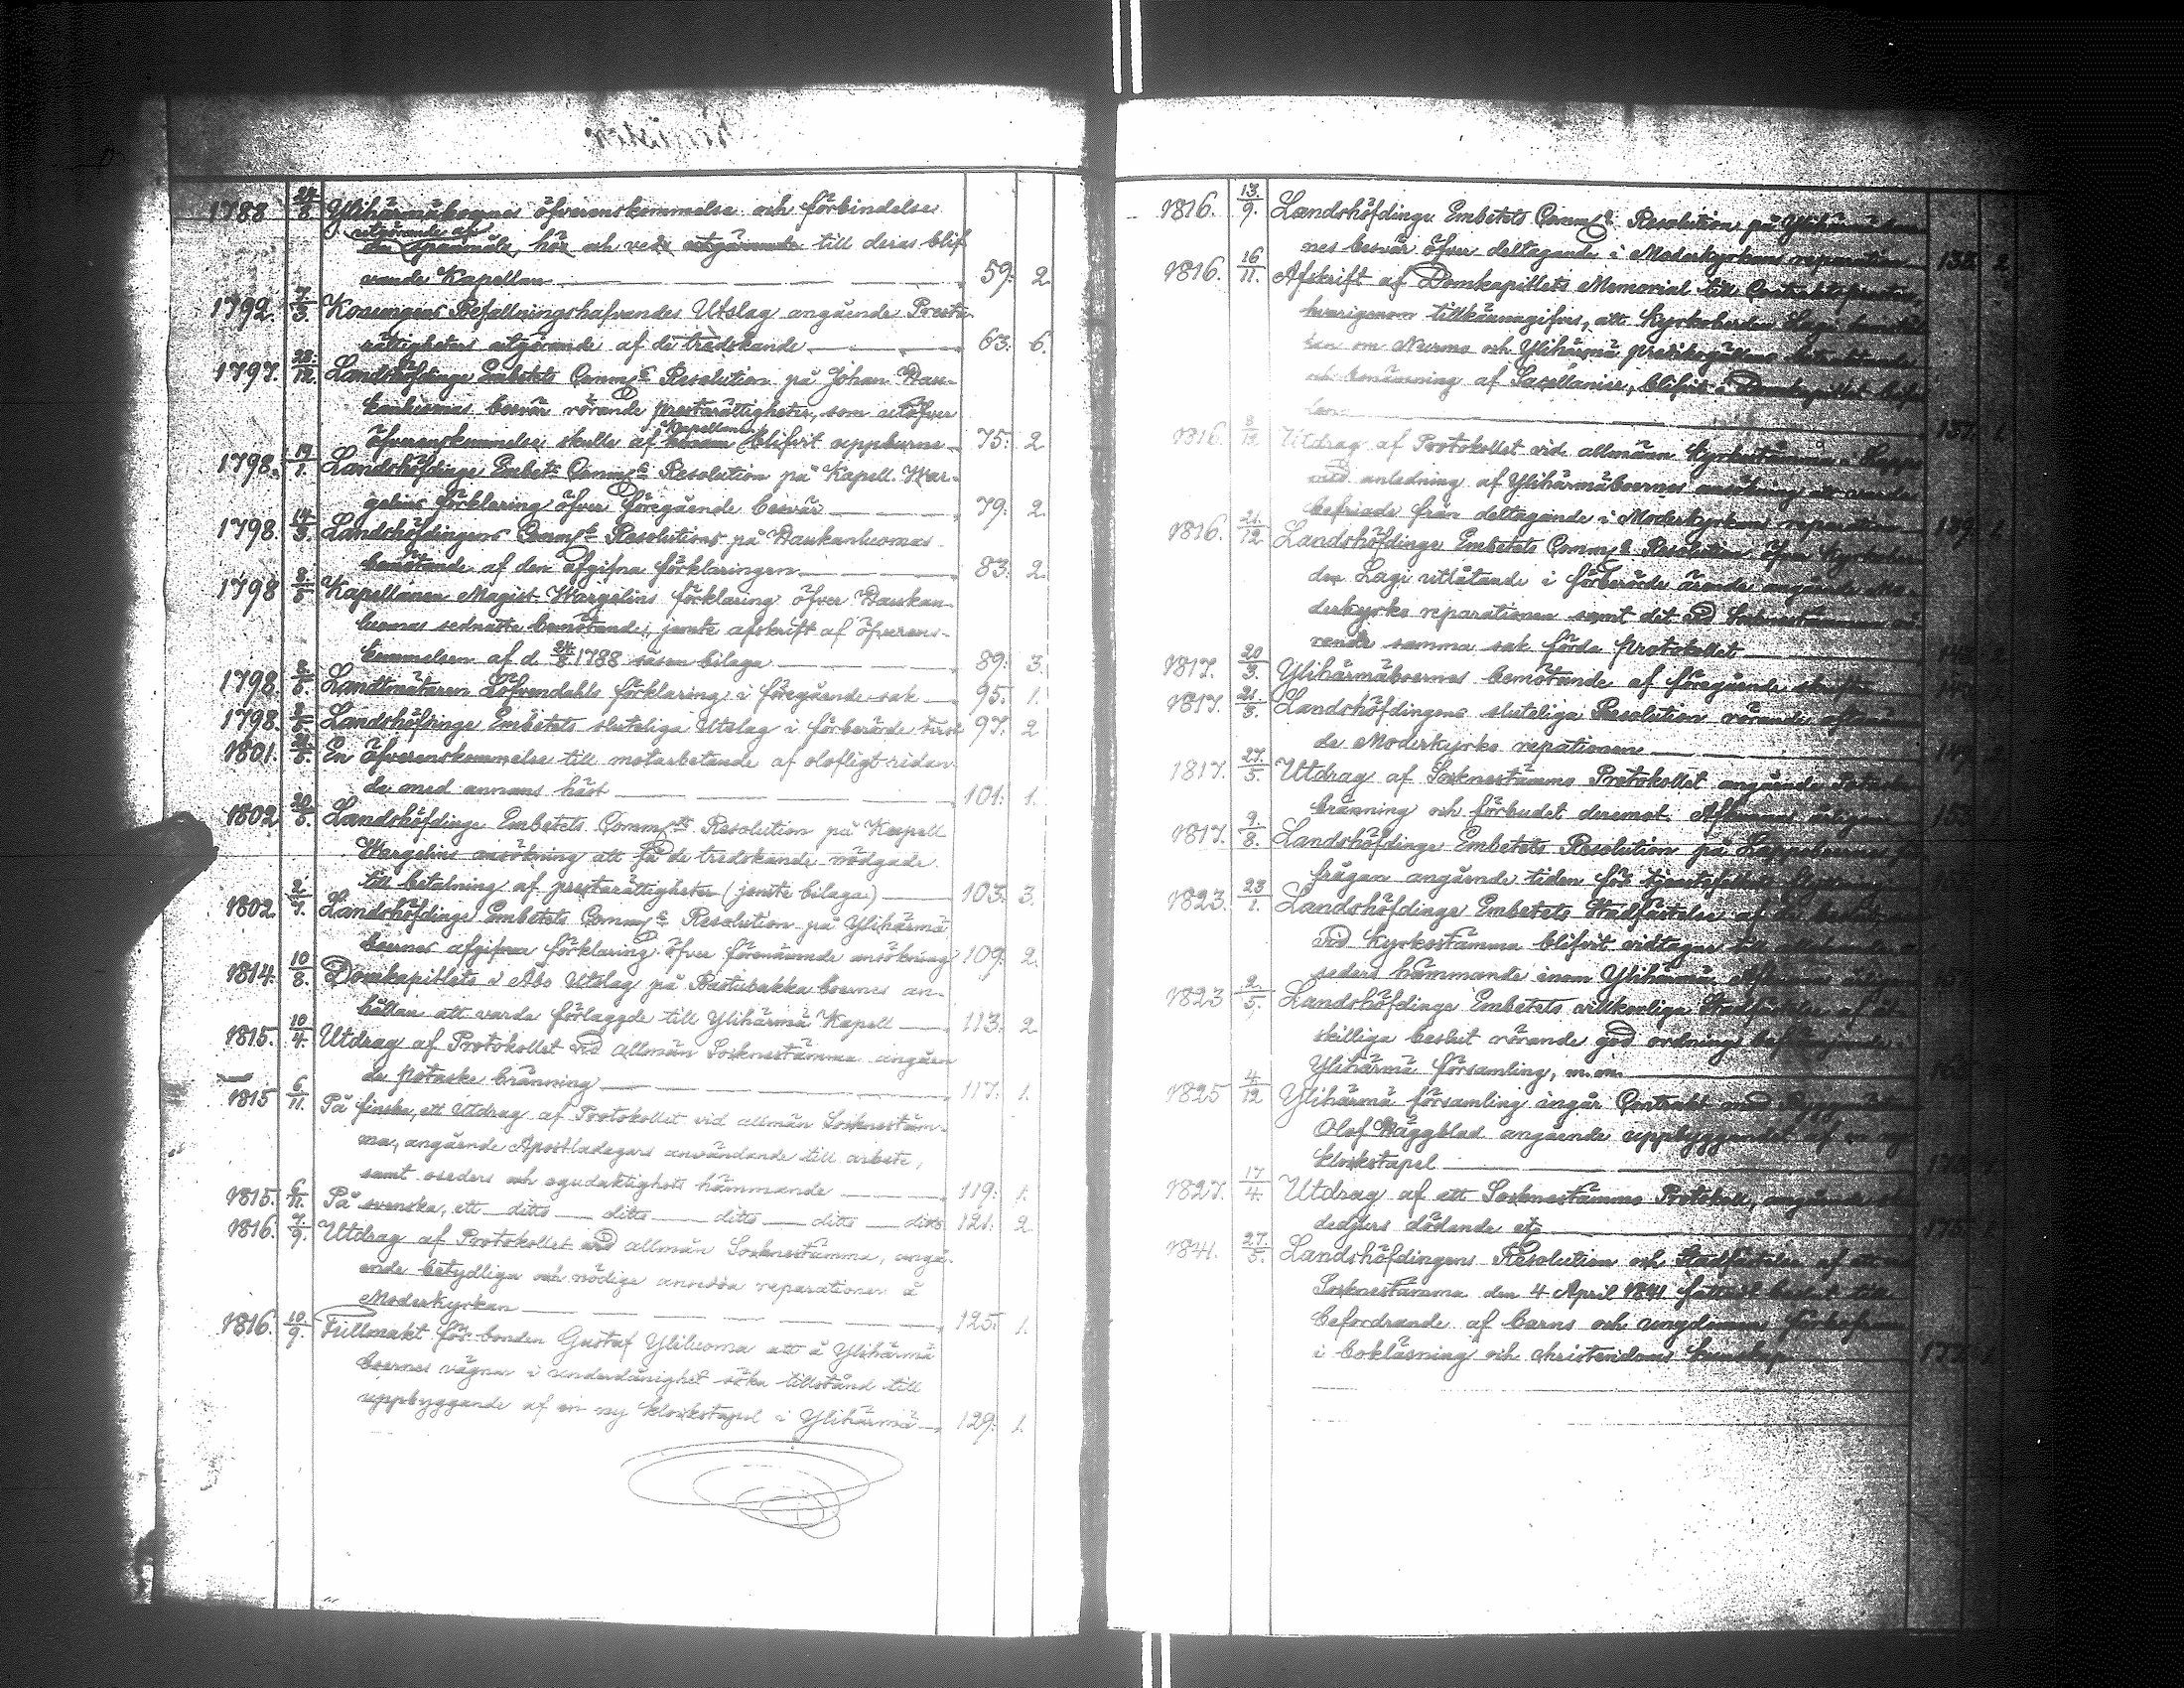 1788 24/8 Ylihärmäboernes öfverenskommelse och förbindelse
utgörande af
den spanmåls, hör och ved utgörande till deras blif
vande Kapellan 59: 2
1792. 7/3. Konungens Befallningshafvandes Utslag angående Presta-
rättigheters utgörande af de tredskande 63: 6.
1797. 20/12. Landshöfdinge Embetets Comm:s Resolution på Johan Hau-
kankuomas besvär rörande prestarättigheter, som utöfver
Kapellan
öfverenskommelse skulle af honom blifvit uppburne 75: 2
1798. 19/1. Landshöfdinge Embets Comm:s Resolution på Kapell. War-
gelins förklaring öfver föregående besvär 79: 2
1798. 14/3. Landshöfdingens Comm:s Resolution på Haukanluomas
bemötande af den afgifna förklaringen 83: 2
1798 2/5 Kapellanen Magist. Wargelins förklaring öfver Haukan-
luomas sednaste bemötande, jemte afskrift af öfverens-
kommelsen af d. 24/8 1788 såsom bilaga 89: 3.
1798. 2/5. Landtmätaren Löfvendahls förklaring i föregående sak 95. 1.
1798. 2/5. Landshöfdinge Embetets slutliga Utslag i förberörde 97. 2
1801. En öfverenskommelse till motarbetande af olofligt ridan
de med annans häst 101: 1.
1802 20/5. Landshöfdinge Embetets Comm:s Resolution på Kapell
Wargelins ansökning att få de tredskande nödgade
till betalning af prestarättigheter (jemte bilaga) 103. 3.
1802. 2/7. Landshöfdinge Embetets Comm:s Resolution på Ylihärmä
boernes afgifne förklaring öfver förenämnde ansökning 109: 2.
1814. 10/8. Domkapitlets i Åbo Utslag på Bastubacka boernes an-
hållan att varda förlaggde till Ylihärmä Kapell 113. 2
1815. 10/4. Utdrag af Protokollet vid allmän Socknestämma angåen
de potaske bränning 117. 1.
1815 6/11. På finska, ett Utdrag af Protokollet vid allmän Socknestäm-
ma, angående Apostladagars användande till arbete,
samt oseders och ogudaktighets hämmande 119. 1.
1815. 6/11. På svenska, ett ditto ditto ditto ditto ditto 121. 2
1816. 7/9. Utdrag af Protokollet vid allmän Socknestämma, angå-
ende betydliga och nödiga ansedda reparationen å
Moderkyrkan 125. 1.
1816. 10/9. Fullmakt för bonden Gustaf Ylikuoma att å Ylihärmä
boernes vägnar i underdånighet söka tillstånd till
uppbyggande af en ny klockstapel i Ylihärmä 129. 1.
1816. 13/9. Landshöfdinge Embetets Comm:s Resolution på Ylihärmäboer
nes besvär öfver deltagande i Moderkyrkans reparation 2
1816. 16/11. Afskrift af Domkapitlets Memorial till Contractsprosten,
hvarigenom tillkännagifves, att Kyrkoherden Lagi
om Nurmo och Ylihärmä predikogällens
och benämning af Sacellanier, blifvit i Domkapitlet
137. 1.
1816. 8/12 Utdrag af Protokollet vid allmänn Kyrkostämma i Lappo
med anledning af Ylihärmäboernes ansökning att varda
befriade från deltagande i Moderkyrkans reparation 139. 1.
1816. 21/12 Landshöfdinge Embetets Comm:s Resolution öfver Kyrkoher
den Lagi utlåtande i förberörde ärende angående Mo-
derkyrko reparationen samt det vid Socknestämman
rande samma sak förda protokollet
1817. 20/3. Ylihärmäboernes bemötande af föregående skrift
1817. 21/3. Landshöfdingens slutliga Resolution rörande
de Moderkyrko repationen
1817. 27/5. Utdrag af Socknestämmo Protokollet angående Potaske
bränning och förbudet deremot.
1817. 9/8. Landshöfdinge Embetets Resolution på Lappoboernes
frågan angående tiden för tjenstefolkets flyttning
1823. 23/1. Landshöfdinge Embetets Stadfästelse af de beslut
vid Kyrkostämma blifvit vidtagne till
seders hämmande inom Ylihärmä
1823 2/5. Landshöfdinge Embetets villkorliga Stadfästelse af åt-
skilliga beslut rörande god ordnings befrämjande i
Ylihärmä församling, m.m.
1825 4/12 Ylihärmä församling ingår Contrakt med Byggmästaren
Olof Häggblad angående uppbyggandet af en ny
klockstapel
1827. 17/4. Utdrag af ett Socknestämmo Protokoll, angående
dödande 175. 1.
1841. 27/5. Landshöfdingens Resolution och Stadfästelse af ett vid
Socknestämma den 4 April 1841 fattadt beslut till
befordrande af barns och ungdomens
i bokläsning och christendoms kunskap